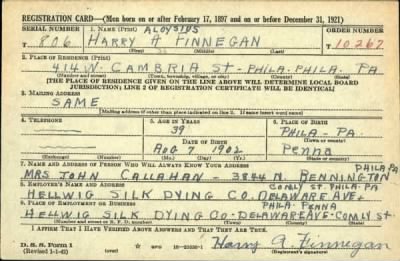 REGISTRATION CARD—(Men born on or after February 17, 1897 and on or before December 31, 1921)
SERIAL NUMBER 1. NAME (Print) ALOYSIUS ORDER NUMBER
T 806 HARRY A FINNEGAN T10267
(First) (Middle) (Last)
2. PLACE OF RESIDENCE (Print)
414 W. CAMBRIA ST - PHILA. PHILA. PA
(Number and street) (Town, township, village, or city) (County) (State)
[THE PLACE OF RESIDENCE GIVEN ON THE LINE ABOVE WILL DETERMINE LOCAL BOARD
JURISDICTION; LINE 2 OF REGISTRATION CERTIFICATE WILL BE IDENTICAL]
3. MAILING ADDRESS
SAME
[Mailing address if other than place indicated on line 2. If same insert word same]
4. TELEPHONE 5. AGE IN YEARS 6. PLACE OF BIRTH
39 PHILA - PA.
DATE OF BIRTH (Town or county)
AUG 7 1902 Penna
(Exchange) (Number) (Mo.) (Day) (Yr.) (State or country)
7. NAME AND ADDRESS OF PERSON WHO WILL ALWAYS KNOW YOUR ADDRESS PHILA-PA
MRS. JOHN CALLAHAN - 3844 N. BENNINGTON
8. EMPLOYER'S NAME AND ADDRESS COMLY ST. PHILA-PA
HELLWIG SILK DYING CO. DELAWARE AVE +
9. PLACE OF EMPLOYMENT OR BUSINESS PHILA - PENNA
HELLWIG SILK DYING CO - DELAWARE AVE - COMLY St.
(Number and street or R. F. D. number) (Town) (County) (State)
I AFFIRM THAT I HAVE VERIFIED ABOVE ANSWERS AND THAT THEY ARE TRUE.
D. S. S. Form 1
(Revised 1-1-42) (over) Harry A. Finnegan
(Registrant's signature)